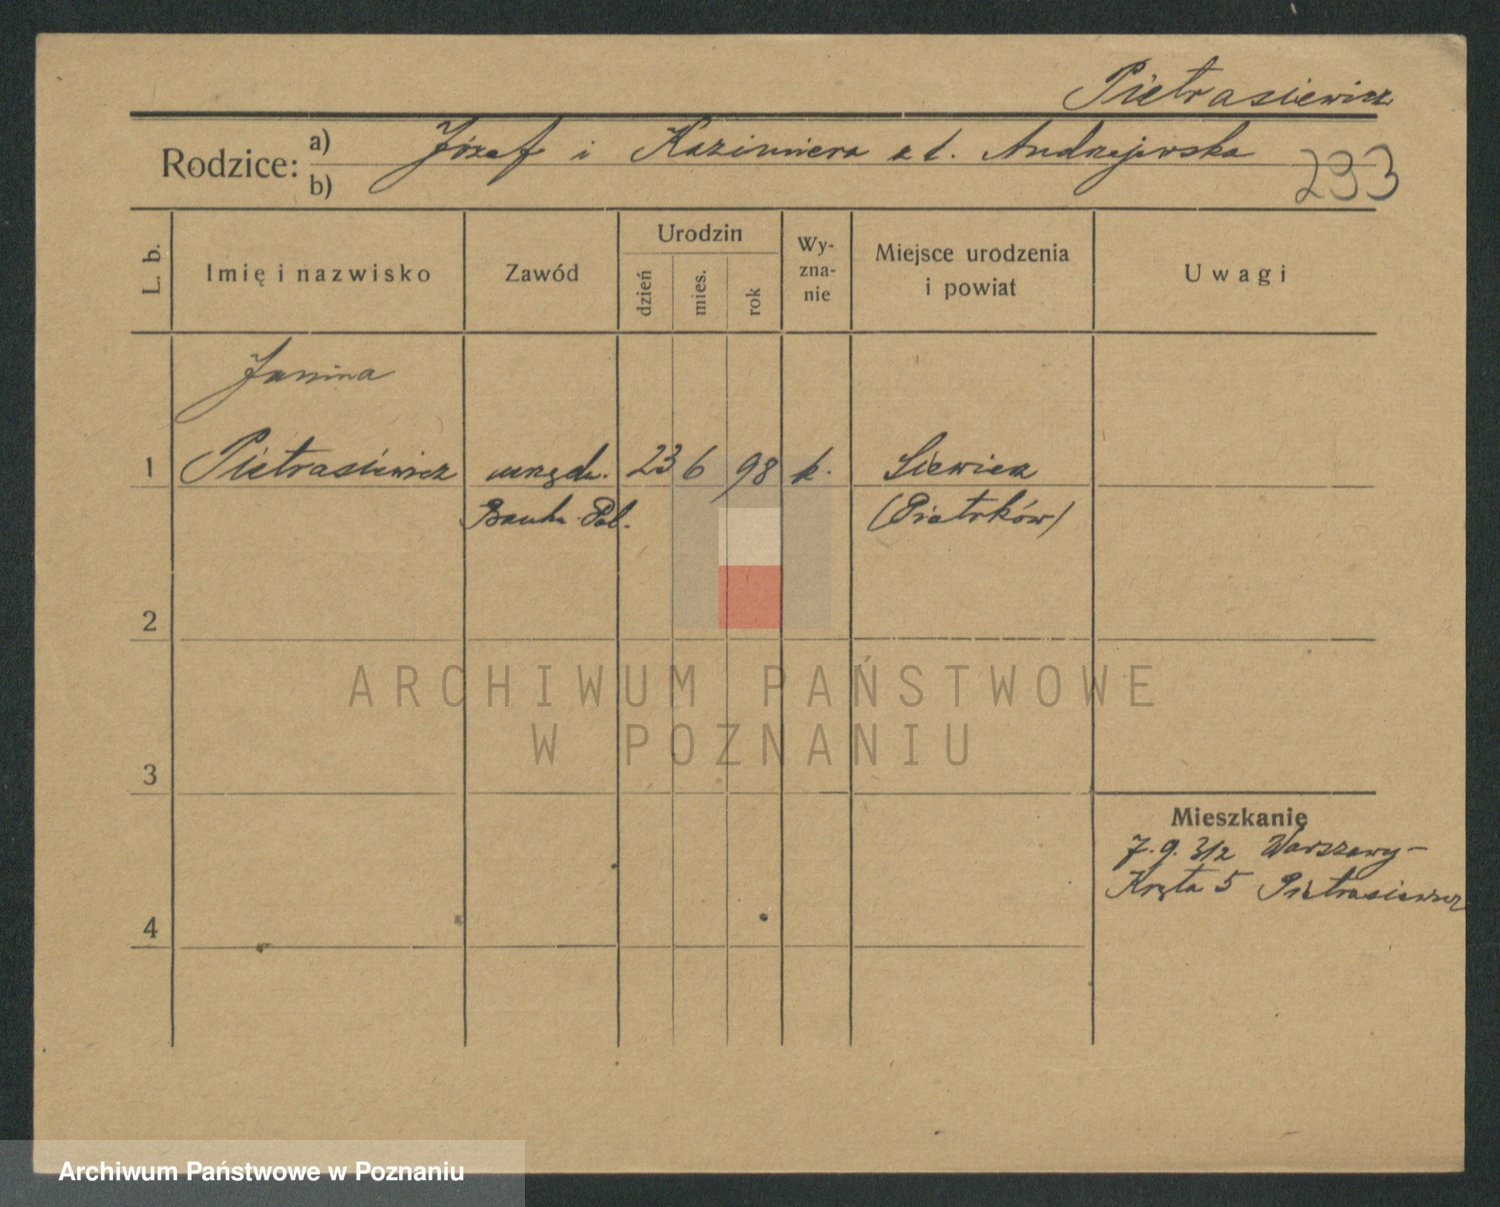 Pietrasiewicz
Rodzice:
a) Józef i Kazimiera z d. Andrzejewska
b)
293
L. b.
Imię i nazwisko
Zawód
Urodzin
dzień
mies.
rok
Wy-
zna-
nie
Miejsce urodzenia
i powiat
Uwagi
Janina
1 Pietrasiewicz urzędn. 23 6 98 k. Siewierz
Banku Pol. (Piotrków)
2
3
4
Mieszkanie
7.9.312 Warszawy-
Kręta 5 Pietrasiewicz
ARCHIWUM PAŃSTWOWE
W POZNANIU
Archiwum Państwowe w Poznaniu